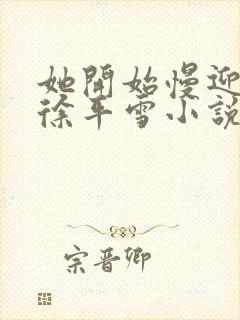 她開始慢迎
徐平雪小說
宗晋卿